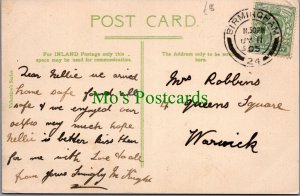 POST CARD.
For INLAND Postage only this
space may be used for communication.
The Address only to be
written here.
BIRMINGHAM
11.30PM
05
24
Dear Nellie we arrived
home safe
safe & we enjoyed our
selves very much hope
Nellie is better Kiss Her
for me with Love to all
from yours M Knight
Mrs Robbins
4 Queens Square
Warwick
Mo's Postcards